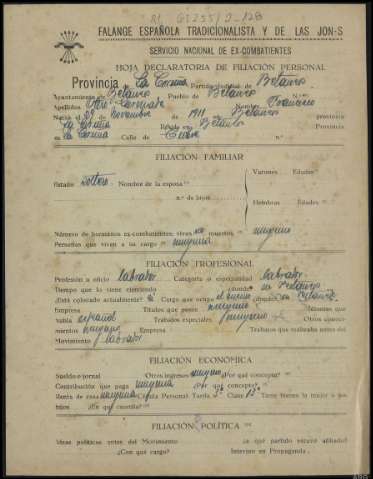 FALANGE ESPAÑOLA TRADICIONALISTA Y DE LAS JON-S
SERVICIO NACIONAL DE EX-COMBATIENTES
HOJA DECLARATORIA DE FILIACIÓN PERSONAL
Provincia de La Coruña Partido judicial de Betanzos
Ayuntamiento de Betanzos Pueblo de Betanzos N.º
Apellidos Nombre Francisco
Nació el 29 de Noviembre de 1911 en Betanzos provincia
La Coruña Reside en Betanzos Provincia
La Coruña Calle de n.º
FILIACIÓN FAMILIAR
Estado soltero Nombre de la esposa
Varones Edades
n.º de hijos
Hembras Edades
Número de hermanos ex-combatientes, vivos muertos ninguno
Personas que viven a su cargo ninguna
FILIACIÓN PROFESIONAL
Profesión u oficio labrador Categoría o especialidad labrador
Tiempo que la viene ejerciendo donde en Betanzos
¿Está colocado actualmente? Si Cargo que ocupa el mismo ¿dónde? en Betanzos
Empresa Títulos que posee ninguno Idiomas que
habla español Trabajos especiales ninguno Otros conoci-
mientos ninguno Empresa Trabajos que realizaba antes del
Movimiento labrador
FILIACIÓN ECONÓMICA
Sueldo o jornal Otros ingresos ninguno ¿Por qué concepto?
Contribución que paga ninguna ¿Por qué concepto?
Renta de casa ninguna Cédula Personal Tarifa Clase 13ª Tiene bienes la mujer o los
hijos ¿En qué cuantía?
FILIACIÓN POLÍTICA
Ideas políticas antes del Movimiento ¿a qué partido estuvo afiliado?
¿Con qué cargo? Intervino en Propaganda